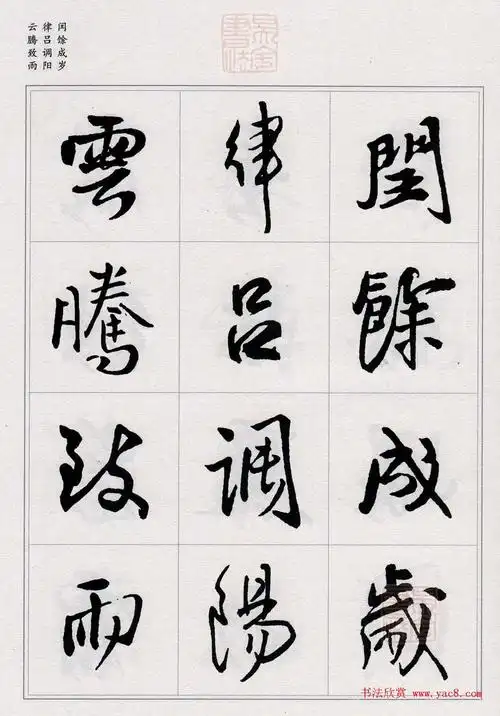 闰馀成岁
律吕调阳
云腾致雨
閏餘成歲
律吕调陽
雲騰致雨
书法欣赏 www.yac8.com